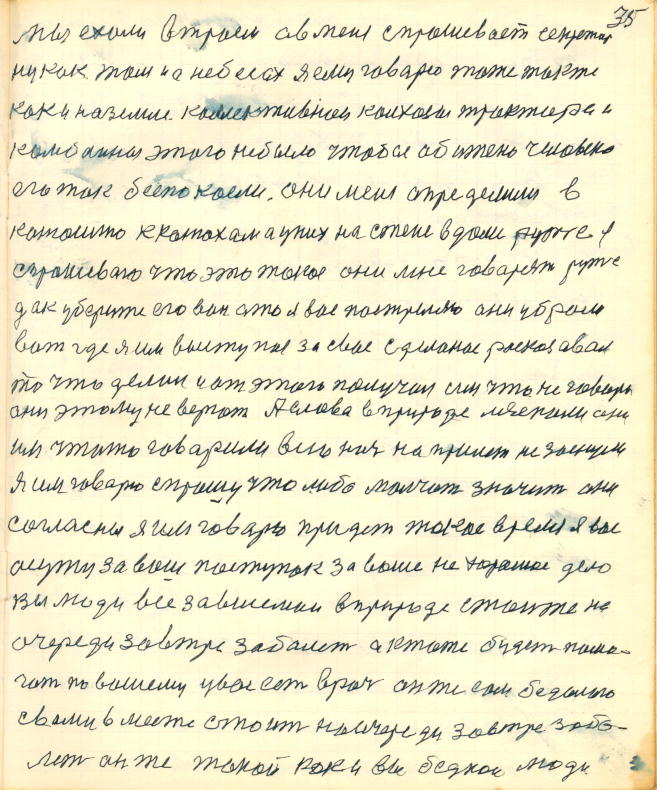 35
мы ехали втроем ав меня спрашивает секретар
ну как там на небесах я ему говарю тоже такте
как и на земле. коллективная колхозы тракткра и
комбаины этого небыло чтобы абижено человека
его так беспокоели. они меня определили в
катошто ккатохам ауних на стене вдоли ружте я
спрашеваю что это такое они мне говарят ружте
дак уберите его вон ато я вас постреляю они убрали
вот где я им выступил за свае сделаное расказавал
то что делал и от этого получал им что не говари
они этому не верют А слова в природе мягкоми они
им чтото говарили всю ноч на прилет не заснули
я им говарю спрашу что либа молчат значит они
согласны я им говарю придет такое время я вас
асужу за ваш поступок за ваше не хорошое дело
вы люди всё зависемаи в природе стаите на
очереди завтре забалет а ктоже будет пома-
гат по вашему увас ест врач онже сам бедалаго
свами вместе стоит наочереди завтре забо-
лет онже такой как и вы беднои люди